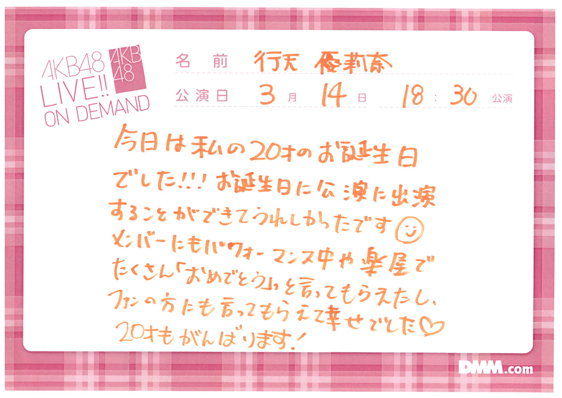 AKB48
LIVE!!
ON DEMAND
AKB
48
名前 行天 優莉奈
公演日 3月 14日 18:30公演
今日は私の20才のお誕生日
でした!!!お誕生日に公演に出演
することができてうれしかったです
メンバーにもパフォーマンス中や楽屋で
たくさん「おめでとう」っと言ってもらえたし、
ファンの方にも言ってもらえて幸せでした♡
20才もがんばります!
DMM.com